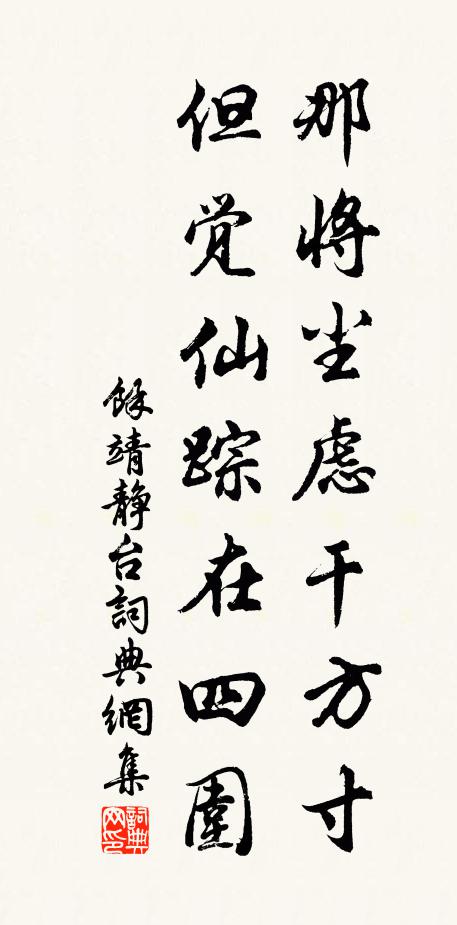 那将尘虑干方寸
但觉仙踪在四围
餘靖静台詞典網集
詞典网印